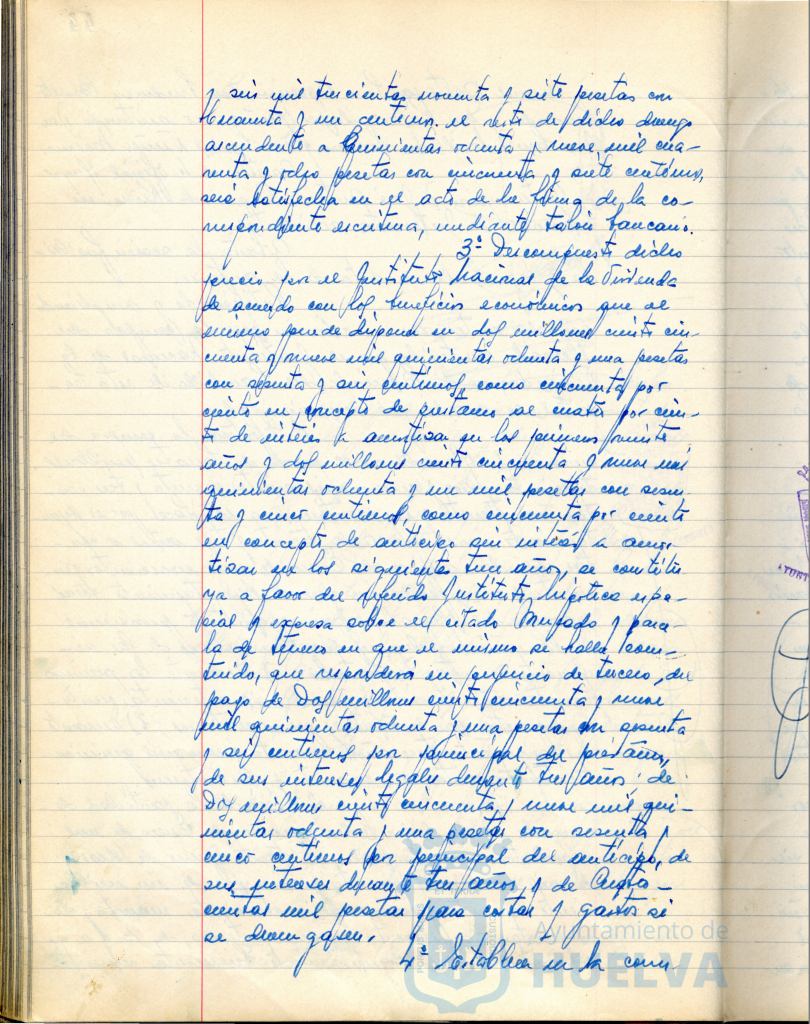 y seis mil trescientas noventa y siete pesetas con
y un centimos. el resto de dicho
ascendente a Quinientas ochenta y nueve mil cua-
renta y ocho pesetas con cincuenta y siete centimos,
será satisfecha en el acto de la firma de la co-
rrespondiente escritura, mediante talón bancario.
3º Descompuesto dicho
precio por el Instituto Nacional de la Vivienda
de acuerdo con los beneficios económicos que el
mismo puede dispone en dos millones ciento cin-
cuenta y nueve mil quinientas ochenta y una pesetas
con sesenta y seis centimos, como cincuenta por
ciento en concepto de prestamo al cuatro por cien-
to de interés a amortizar en los primeros veinte
años y dos millones ciento cincuenta y nueve mil
quinientas ochenta y un mil pesetas con sesen-
ta y cinco centimos, como cincuenta por ciento
en concepto de anticipo sin interés a amor-
tizar en los siguientes años, se constitu-
ya a favor del referido Instituto, hipoteca espe-
cial y expresa sobre el citado Mercado y parce-
la de terreno en que el mismo se halla cons-
truido, que responderá en perjuicio de tercero, del
pago de Dos millones ciento cincuenta y nueve
mil quinientas ochenta y una pesetas con sesenta
y seis centimos por principal del préstamo,
de sus intereses legales durante tres años; de
Dos millones ciento cincuenta y nueve mil qui-
nientas ochenta y una pesetas con sesenta y
cinco centimos por principal del anticipo, de
sus intereses durante tres años, y de Cuatro-
cientas mil pesetas para costas y gastos si
se devengasen.
4º Establecer en la
Ayuntamiento de
HUELVA